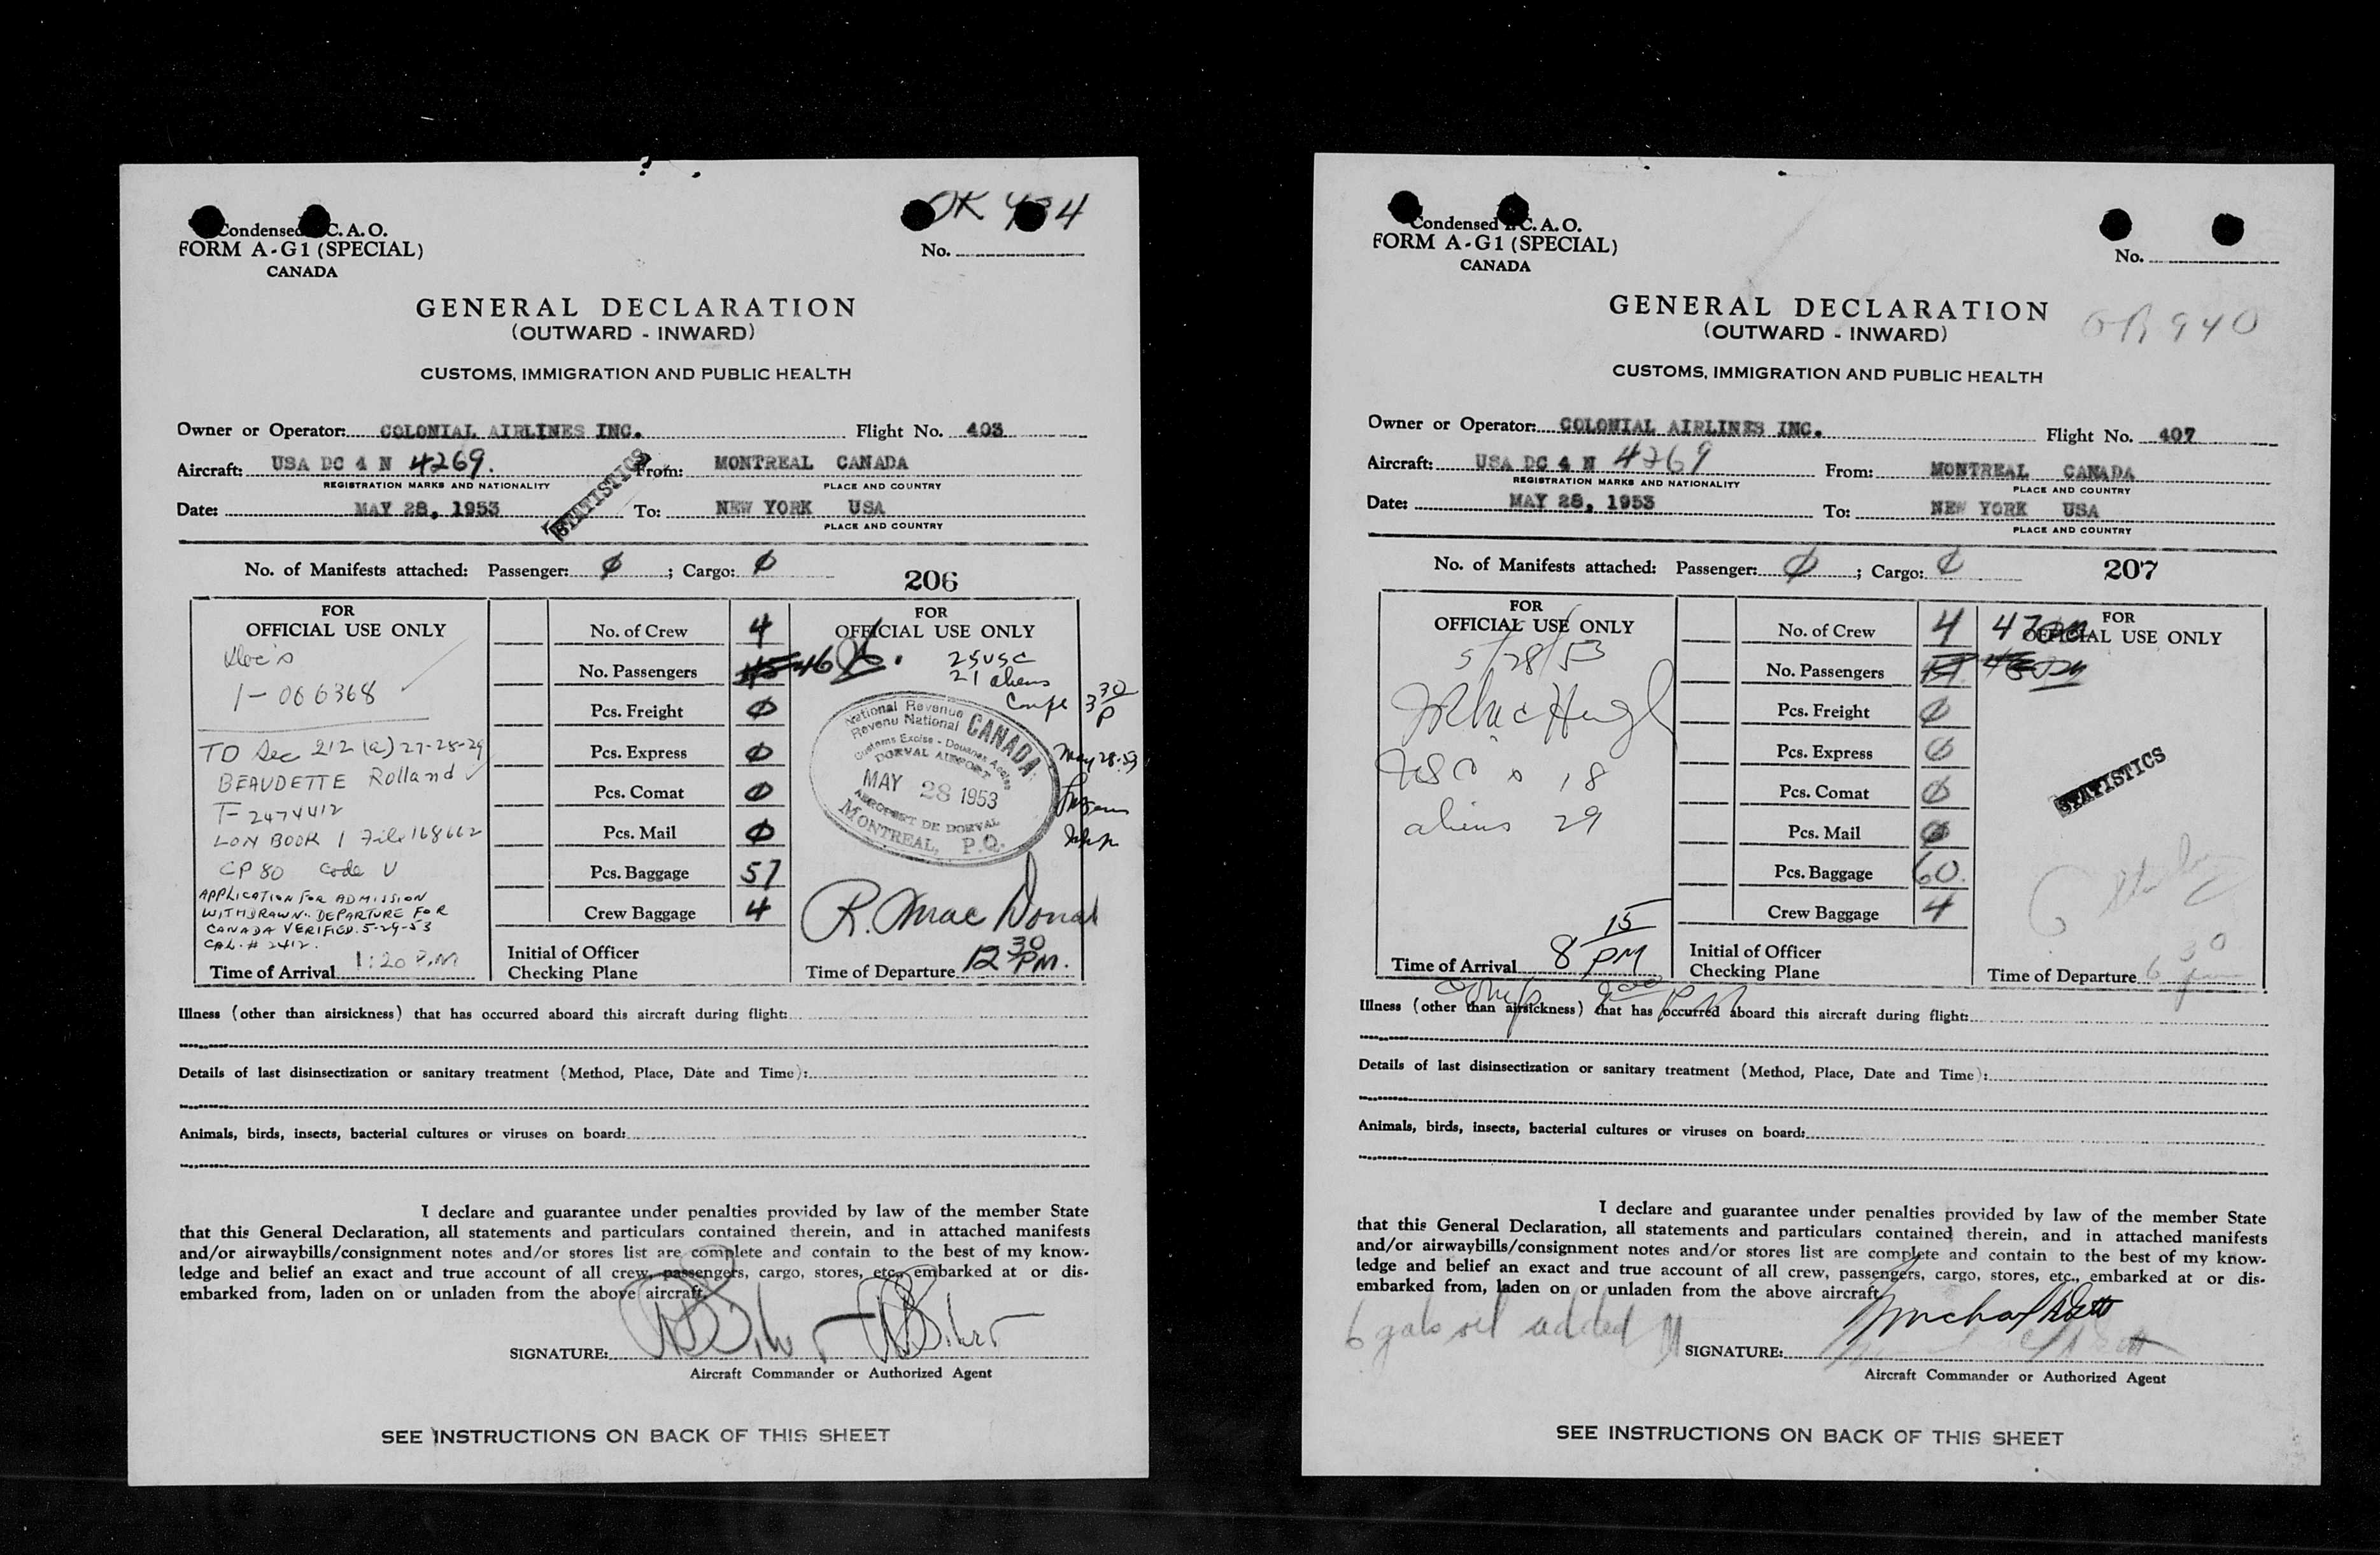 OK 434
Condensed I.C.A.O.
FORM A-G1 (SPECIAL)
CANADA
No.
GENERAL DECLARATION
(OUTWARD - INWARD)
CUSTOMS, IMMIGRATION AND PUBLIC HEALTH
Owner or Operator: COLONIAL AIRLINES INC. Flight No. 403
Aircraft: USA DC 4 N 4269. From: MONTREAL CANADA
REGISTRATION MARKS AND NATIONALITY PLACE AND COUNTRY
STATISTICS
Date: MAY 28, 1953 To: NEW YORK USA
PLACE AND COUNTRY
No. of Manifests attached: Passenger: 0; Cargo: 0
206
FOR
OFFICIAL USE ONLY
1-066368
TO Sec 212 (a) 27-28-29
BEAUDETTE Rolland
T-2474412
LON BOOK 1 File 168662
CP 80 Code U
APPLICATION FOR ADMISSION
WITHDRAWN. DEPARTURE FOR
CANADA VERIFIED. 5-29-53
CAL. # 2412.
Time of Arrival 1:20 P.M
No. of Crew 4
No. Passengers 45 46
Pcs. Freight 0
Pcs. Express 0
Pcs. Comat 0
Pcs. Mail 0
Pcs. Baggage 57
Crew Baggage 4
Initial of Officer
Checking Plane
FOR
OFFICIAL USE ONLY
25 USC
21 aliens
3 30 P
May 28-53
National Revenue
Revenu National
CANADA
Customs Excise - Douanes Accise
DORVAL AIRPORT
MAY 28 1953
AEROPORT DE DORVAL
MONTREAL, P.Q.
R. Mac Donald
Time of Departure 12 30 PM.
Illness (other than airsickness) that has occurred aboard this aircraft during flight:
Details of last disinsectization or sanitary treatment (Method, Place, Date and Time):
Animals, birds, insects, bacterial cultures or viruses on board:
I declare and guarantee under penalties provided by law of the member State
that this General Declaration, all statements and particulars contained therein, and in attached manifests
and/or airwaybills/consignment notes and/or stores list are complete and contain to the best of my know-
ledge and belief an exact and true account of all crew, passengers, cargo, stores, etc., embarked at or dis-
embarked from, laden on or unladen from the above aircraft.
SIGNATURE:
Aircraft Commander or Authorized Agent
SEE INSTRUCTIONS ON BACK OF THIS SHEET
Condensed I.C.A.O.
FORM A-G1 (SPECIAL)
CANADA
No.
GENERAL DECLARATION
(OUTWARD - INWARD)
940
CUSTOMS, IMMIGRATION AND PUBLIC HEALTH
Owner or Operator: COLONIAL AIRLINES INC. Flight No. 407
Aircraft: USA DC 4 N 4269 From: MONTREAL CANADA
REGISTRATION MARKS AND NATIONALITY PLACE AND COUNTRY
Date: MAY 28, 1953 To: NEW YORK USA
PLACE AND COUNTRY
No. of Manifests attached: Passenger: 0; Cargo: 0
207
FOR
OFFICIAL USE ONLY
5/28/53
USC s 18
aliens 29
Time of Arrival 8 15 PM
No. of Crew 4
No. Passengers 47
Pcs. Freight 0
Pcs. Express 0
Pcs. Comat 0
Pcs. Mail 0
Pcs. Baggage 60.
Crew Baggage 4
Initial of Officer
Checking Plane
FOR
OFFICIAL USE ONLY
STATISTICS
Time of Departure 6 30
Illness (other than airsickness) that has occurred aboard this aircraft during flight:
Details of last disinsectization or sanitary treatment (Method, Place, Date and Time):
Animals, birds, insects, bacterial cultures or viruses on board:
I declare and guarantee under penalties provided by law of the member State
that this General Declaration, all statements and particulars contained therein, and in attached manifests
and/or airwaybills/consignment notes and/or stores list are complete and contain to the best of my know-
ledge and belief an exact and true account of all crew, passengers, cargo, stores, etc., embarked at or dis-
embarked from, laden on or unladen from the above aircraft
6 gals oil added
SIGNATURE:
Aircraft Commander or Authorized Agent
SEE INSTRUCTIONS ON BACK OF THIS SHEET